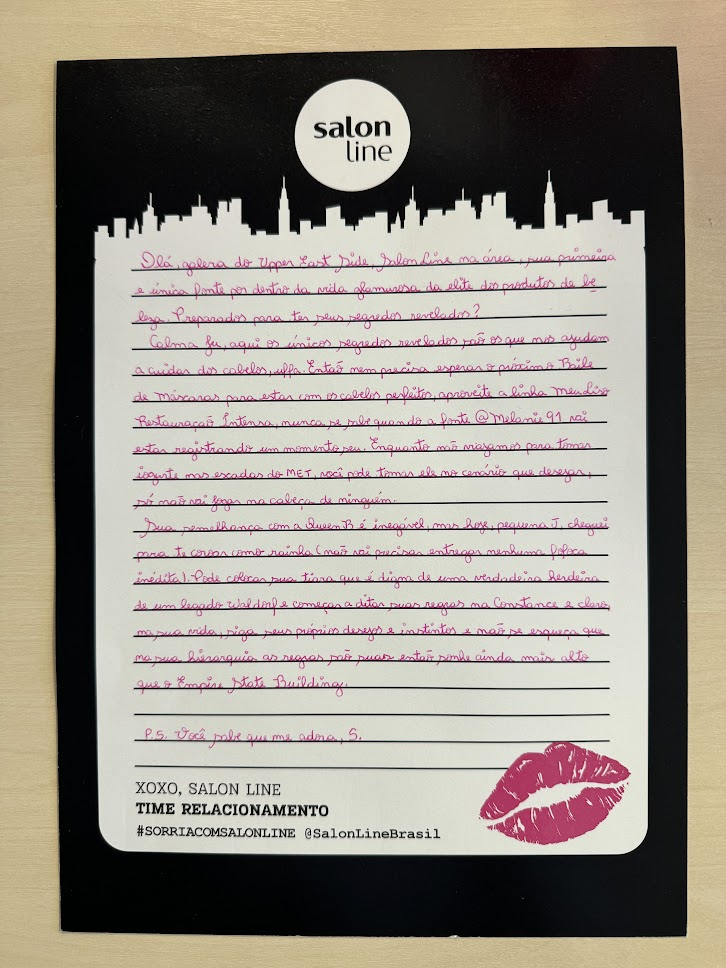 salon
line
Olá, galera do Upper East Side, Salon Line na área, sua primeira
e única fonte por dentro da vida glamurosa da elite dos produtos de be
leza. Preparados para ter seus segredos revelados?
Calma fu, aqui os únicos segredos revelados são os que nos ajudam
a cuidar dos cabelos, uffa. Então nem precisa esperar o próximo Baile
de Máscaras para estar com os cabelos perfeitos, aproveite a linha Meu Liso
Restauração Intensa, nunca se sabe quando a fonte @Melanie91 vai
estar registrando um momento seu. Enquanto não viajamos para tomar
iogurte nas escadas do MET, você pode tomar ele no cenário que desejar,
só não vai jogar na cabeça de ninguém.
Sua semelhança com a Queen B é inegável, mas hoje, pequena J, cheguei
para te coroar como rainha (não vai precisar entregar nenhuma fofoca
inédita). Pode colocar sua tiara que é digna de uma verdadeira herdeira
de um legado Waldorf e começar a ditar suas regras na Constance e claro,
na sua vida, siga seus próprios desejos e instintos e não se esqueça que
na sua hierarquia as regras são suas então sonhe ainda mais alto
que o Empire State Building.
P.S. Você sabe que me adora, S.
XOXO, SALON LINE
TIME RELACIONAMENTO
#SORRIACOMSALONLINE @SalonLineBrasil